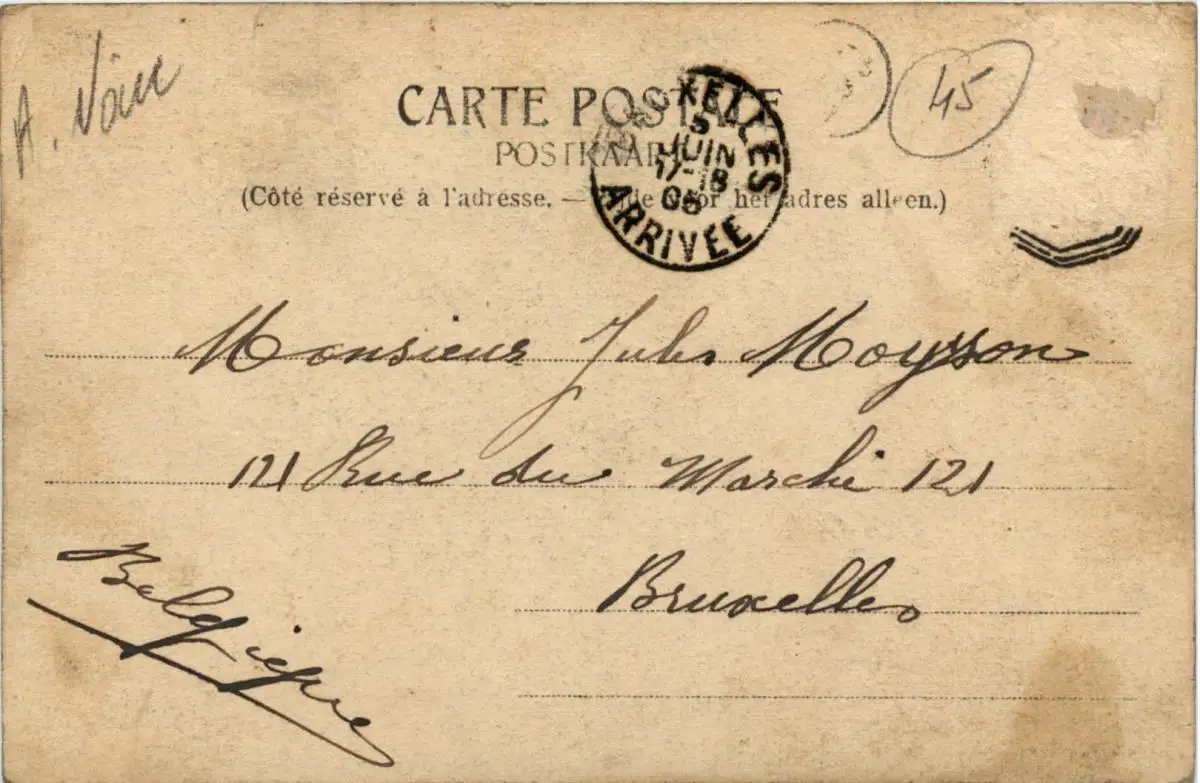 A. Voir
45
CARTE POSTALE
POSTKAART
(Côté réservé à l'adresse. — Zijde voor het adres alleen.)
BRUXELLES
5
JUIN
17-18
05
ARRIVÉE
Monsieur Jules Moysson
121 Rue du Marché 121
Bruxelles
Belgique